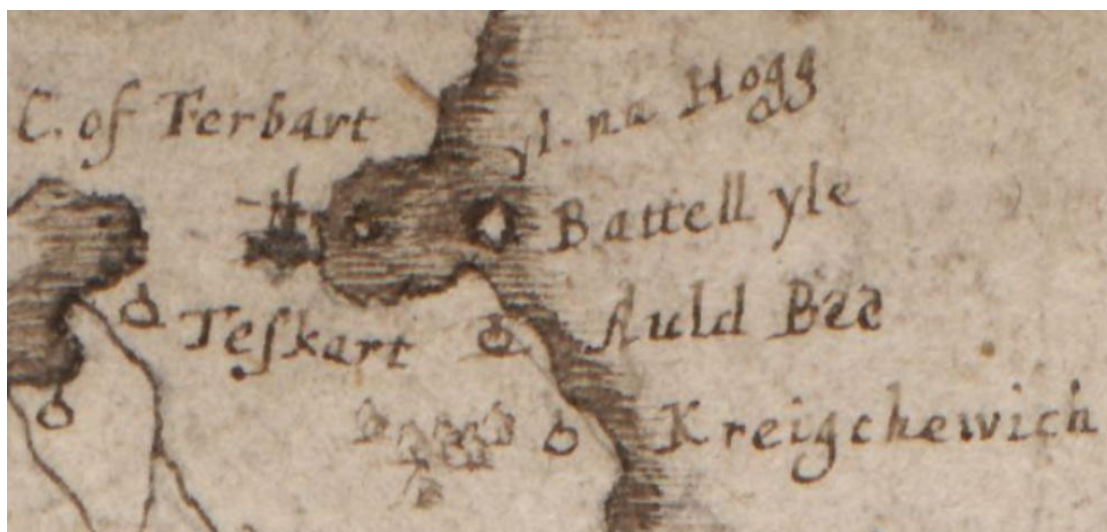 C. of Terbart
I. na Hogg
Battell yle
Teſkart
Auld Beé
Kreigchewich